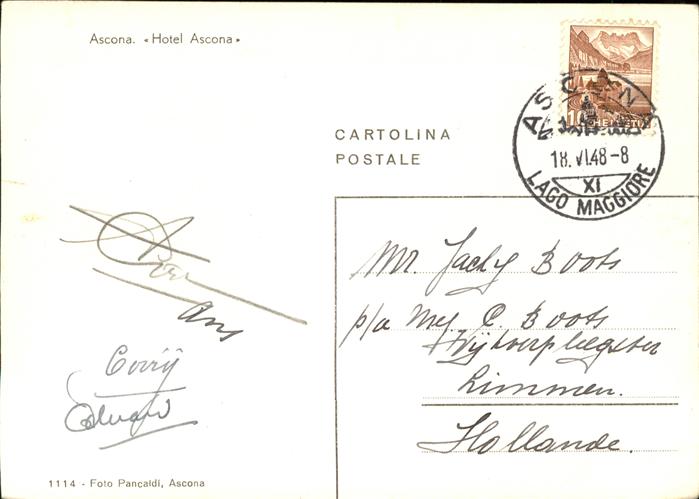 Ascona. «Hotel Ascona»
CARTOLINA
POSTALE
10 HELVETIA
ASCONA
18. VI.48-8
XI
LAGO MAGGIORE
Mr. Jacky Boots
p/a Mej C. Boots
Wijkverpleegster
Limmen.
Hollande.
Ans
Corrij
Eduard
1114 - Foto Pancaldi, Ascona